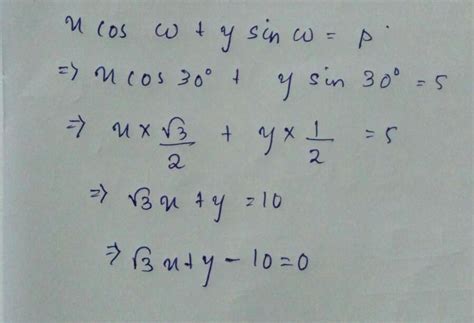 x cos ω + y sin ω = p
⇒ x cos 30° + y sin 30° = 5
⇒ x × √3/2 + y × 1/2 = 5
⇒ √3 x + y = 10
⇒ √3 x + y - 10 = 0